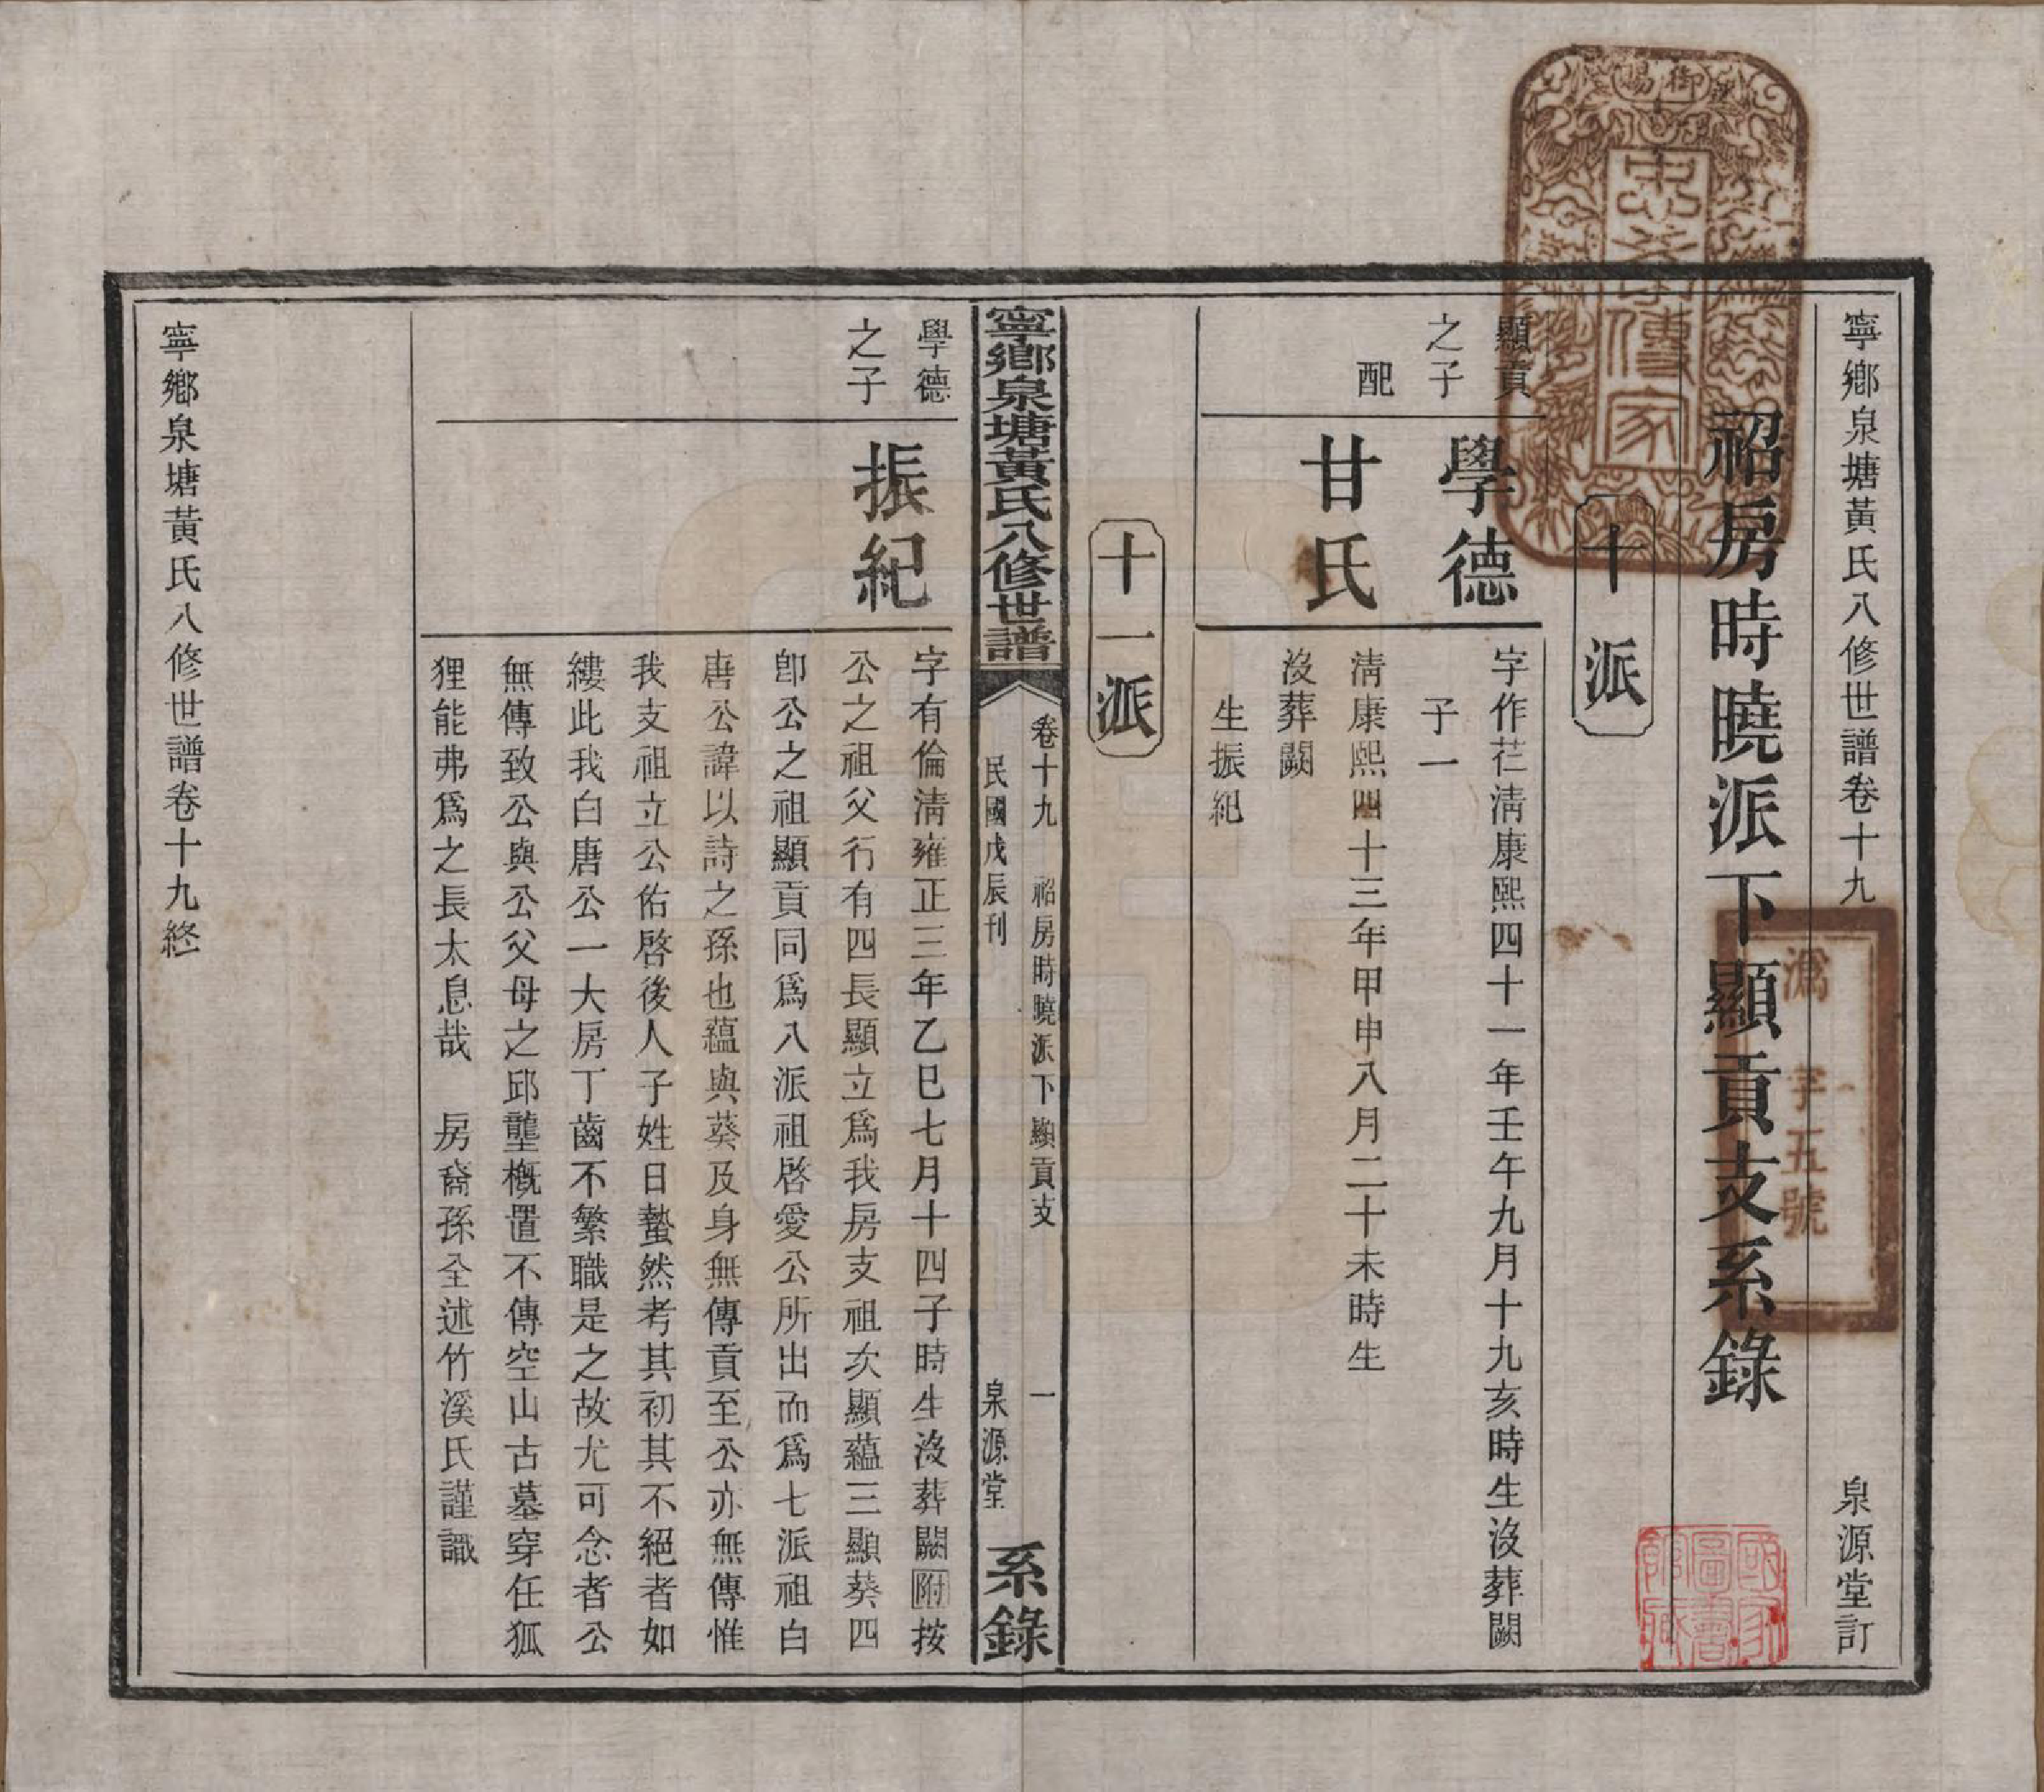 寧鄉泉塘黃氏八修世譜卷十九
泉源堂訂
祒房時曉派下顯貢支系錄
十派
顯貢之子
學德
字作芢淸康熙四十一年壬午九月十九亥時生沒葬闕
子一
配
甘氏
淸康熙四十三年甲申八月二十未時生
沒葬闕
生振紀
十一派
寧鄉泉塘黃氏八修世譜
卷十九
祒房時曉派下顯貢支
一
民國戊辰刊
泉源堂
系錄
學德之子
振紀
字有倫淸雍正三年乙巳七月十四子時生沒葬闕附按
公之祖父行有四長顯立爲我房支祖次顯蘊三顯葵四
卽公之祖顯貢同爲八派祖啓愛公所出而爲七派祖白
唐公諱以詩之孫也蘊與葵及身無傳貢至公亦無傳惟
我支祖立公佑啓後人子姓日蟄然考其初其不絕者如
縷此我白唐公一大房丁齒不繁職是之故尤可念者公
無傳致公與公父母之邱壟槪置不傳空山古墓穿任狐
狸能弗爲之長太息哉 房裔孫全述竹溪氏謹識
寧鄉泉塘黃氏八修世譜卷十九終
御賜
忠孝傳家
溈字五號
國家圖書館藏